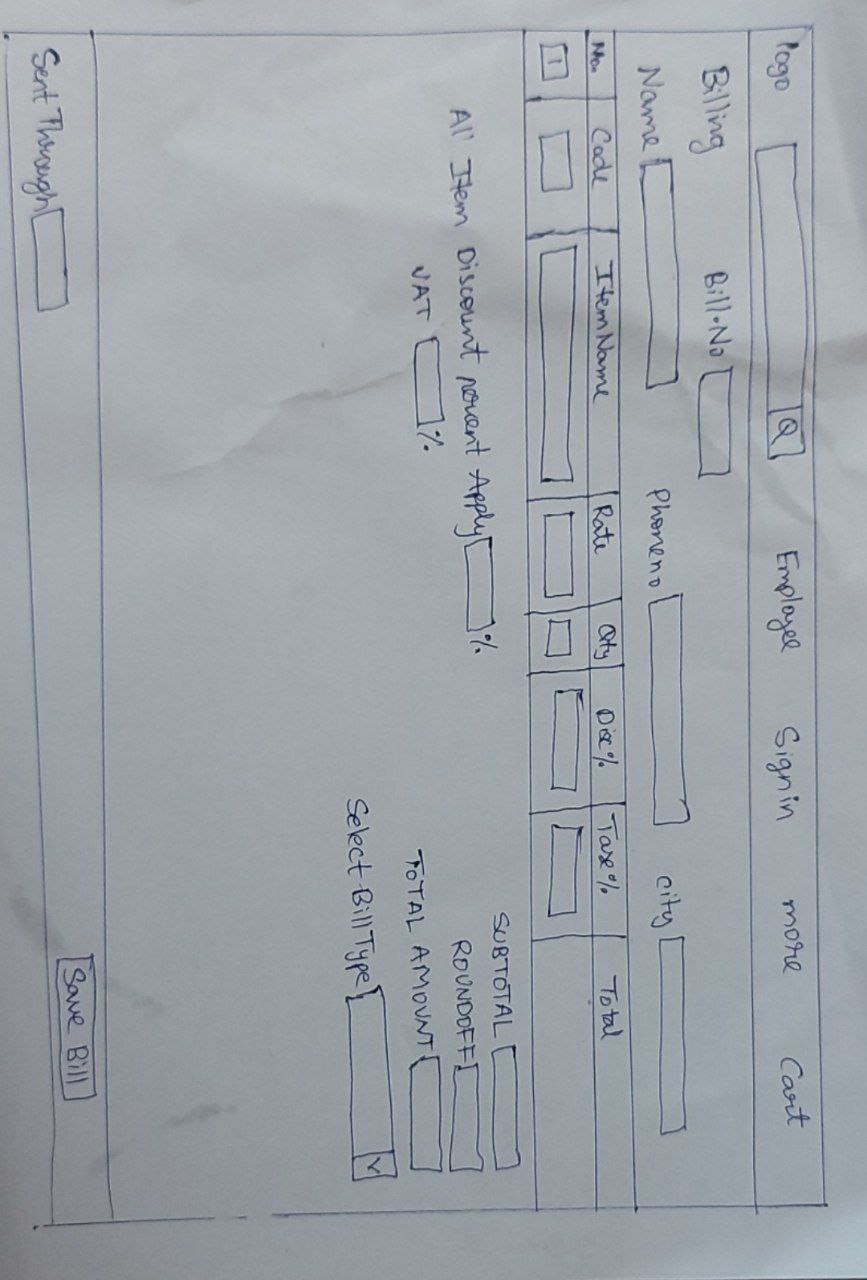 logo Q Employee Signin more Cart
Billing Bill.No
Name Phoneno city
No. Code Item Name Rate Qty Dis% Taxe% Total
1
All Item Discount percent Apply % SUBTOTAL
ROUNDOFF
VAT % TOTAL AMOUNT
Select Bill Type
Sent Through Save Bill